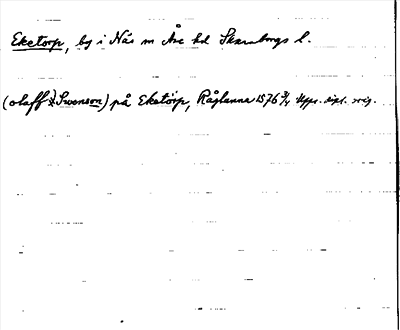 Eketorp, by i Nås sn Åse hd Skaraborgs l.
(olaff Swenson) på Eketörp, Råglanna 1576 3/4 Upps. dipl. orig.